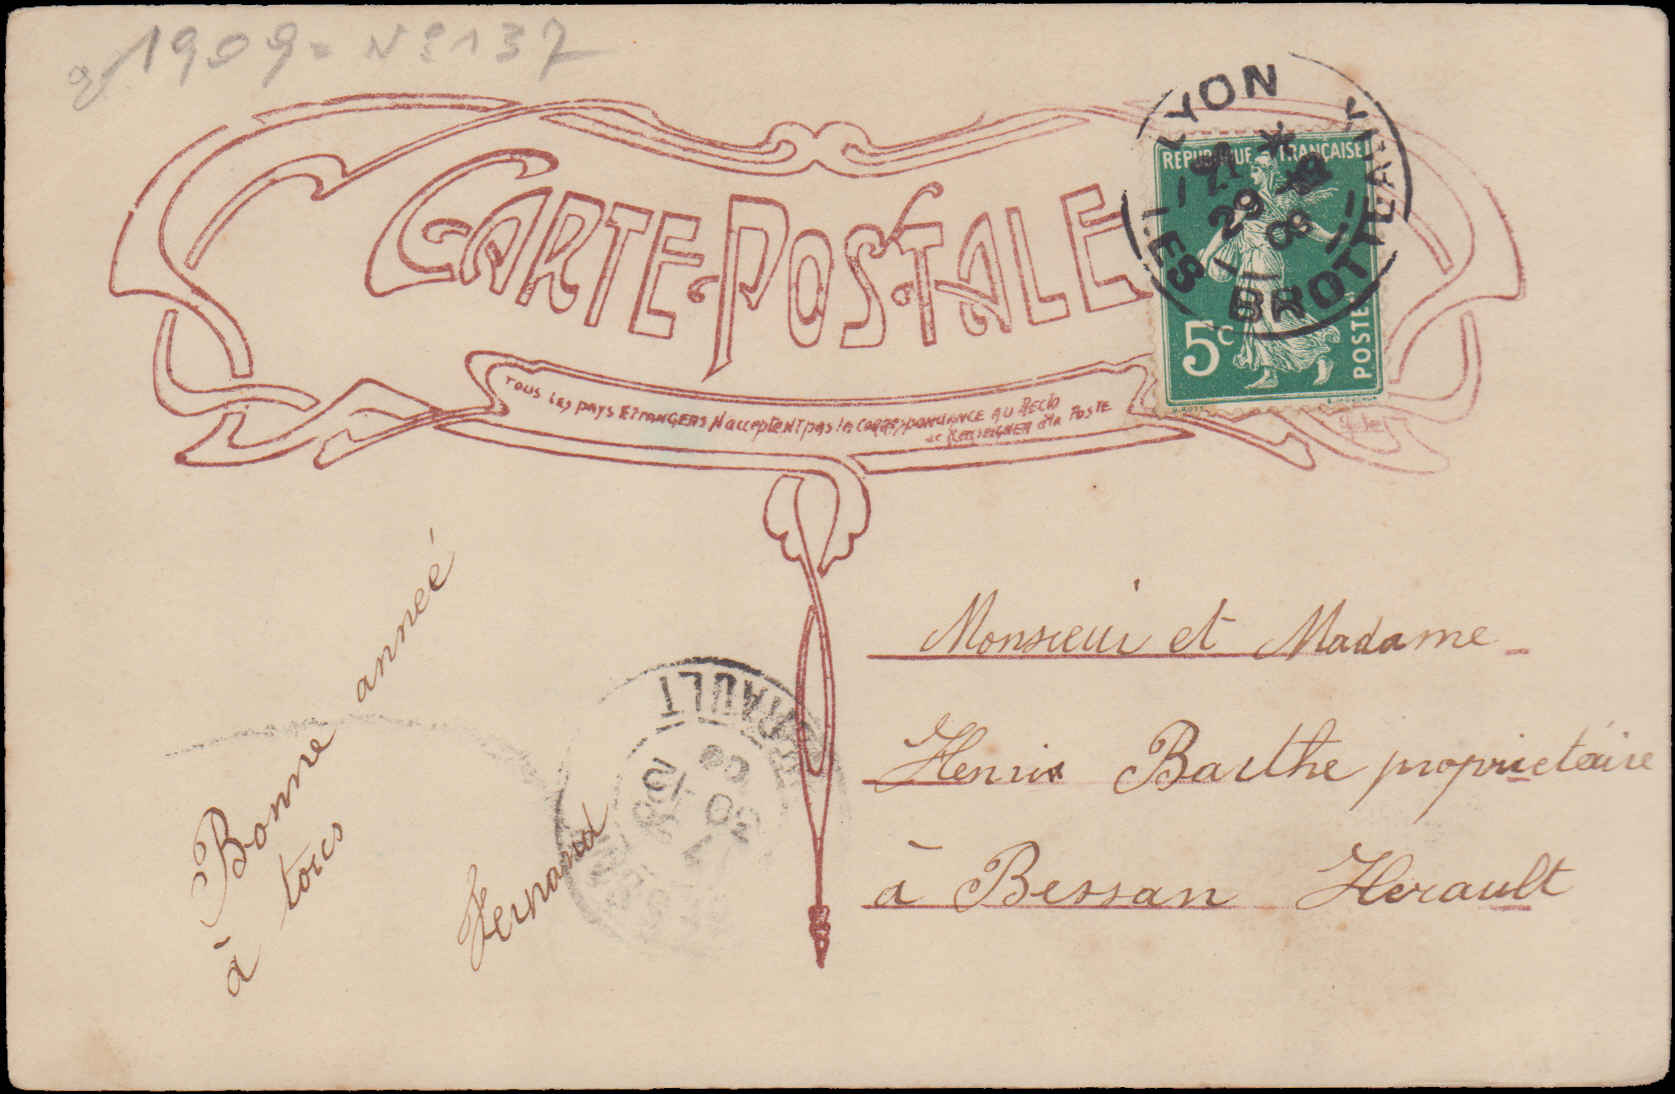 1909 = Nº 137
CARTE POSTALE
TOUS LES PAYS ETRANGERS N'acceptent pas la CORRESPONDANCE AU RECTO
se RENSEIGNER à la POSTE
RÉPUBLIQUE FRANÇAISE
5c
POSTES
LYON
LES BROTTEAUX
29
08
Bonne anneé
à tous
Fernand
HERAULT
30
Monsieur et Madame
Henri Barthe propriétaire
à Bessan Herault